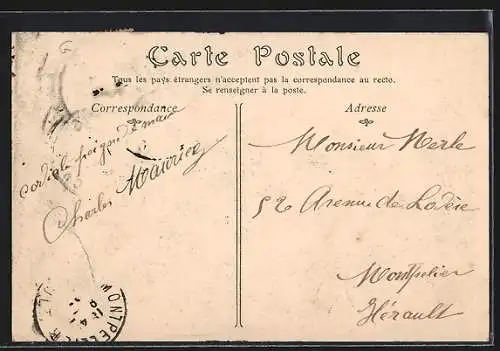 Carte Postale
Tous les pays étrangers n'acceptent pas la correspondance au recto.
Se renseigner à la poste.
Correspondance
Adresse
Cordiale poignée de main
Charles Maurice
Monsieur Merle
52 Avenue de Lodève
Montpelier
Hérault
MONTPELLIER